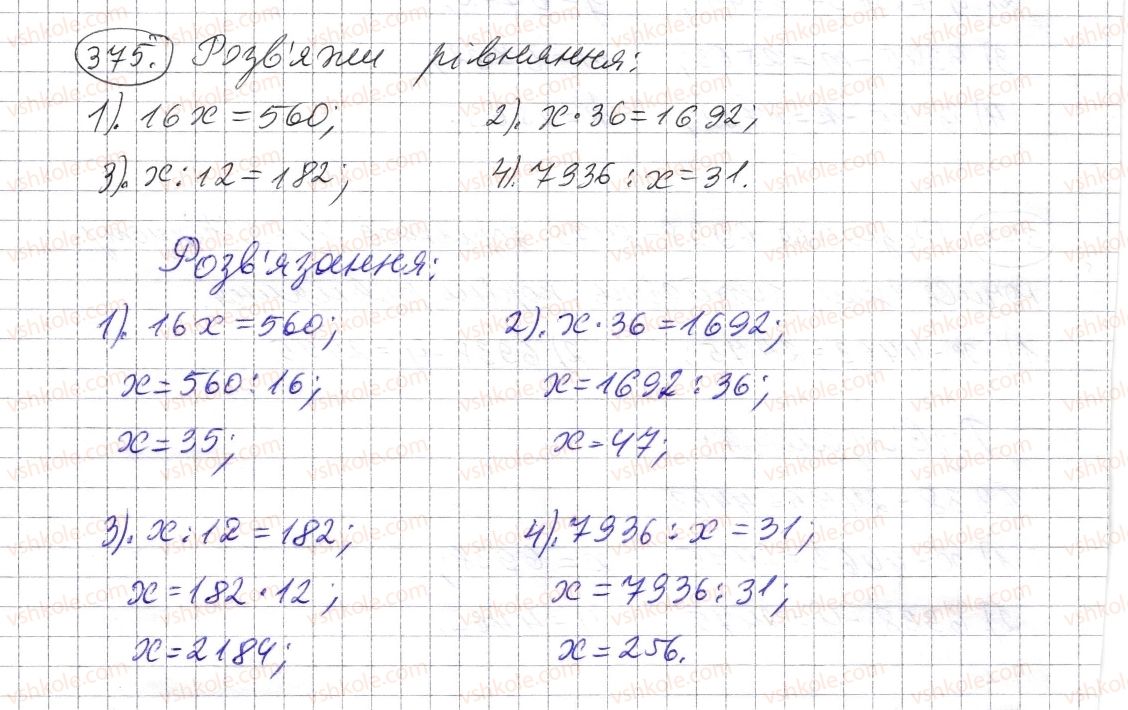 375. Розв'яжи рівняння:
1). 16x = 560; 2). x · 36 = 1692;
3). x : 12 = 182; 4). 7936 : x = 31.
Розв'язання:
1). 16x = 560; 2). x · 36 = 1692;
x = 560 : 16; x = 1692 : 36;
x = 35; x = 47;
3). x : 12 = 182; 4). 7936 : x = 31;
x = 182 · 12; x = 7936 : 31;
x = 2184; x = 256.